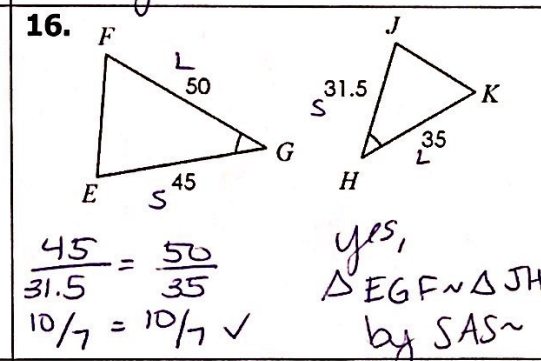 16.
F
L
50
G
E
S 45
J
S 31.5
K
35
L
H
45/31.5 = 50/35
10/7 = 10/7 ✓
yes,
△EGF ~ △JH
by SAS~